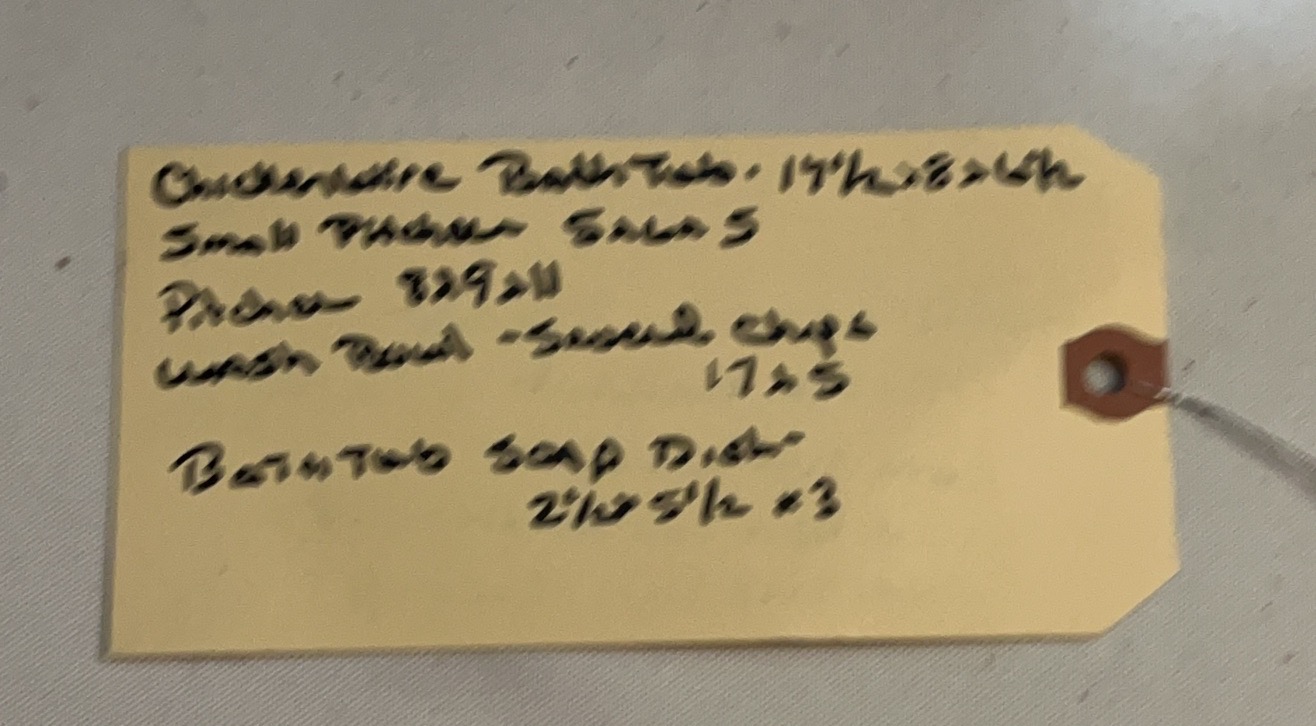 Chickenwire Bath Tub. 17 1/2 x 8 x 6 1/2
Small Pitcher 5x6x5
Pitcher 8x9x11
Wash Bowl - Several Chips
17x5
Bath Tub Soap Dish
2 1/2 x 5 1/2 x 3